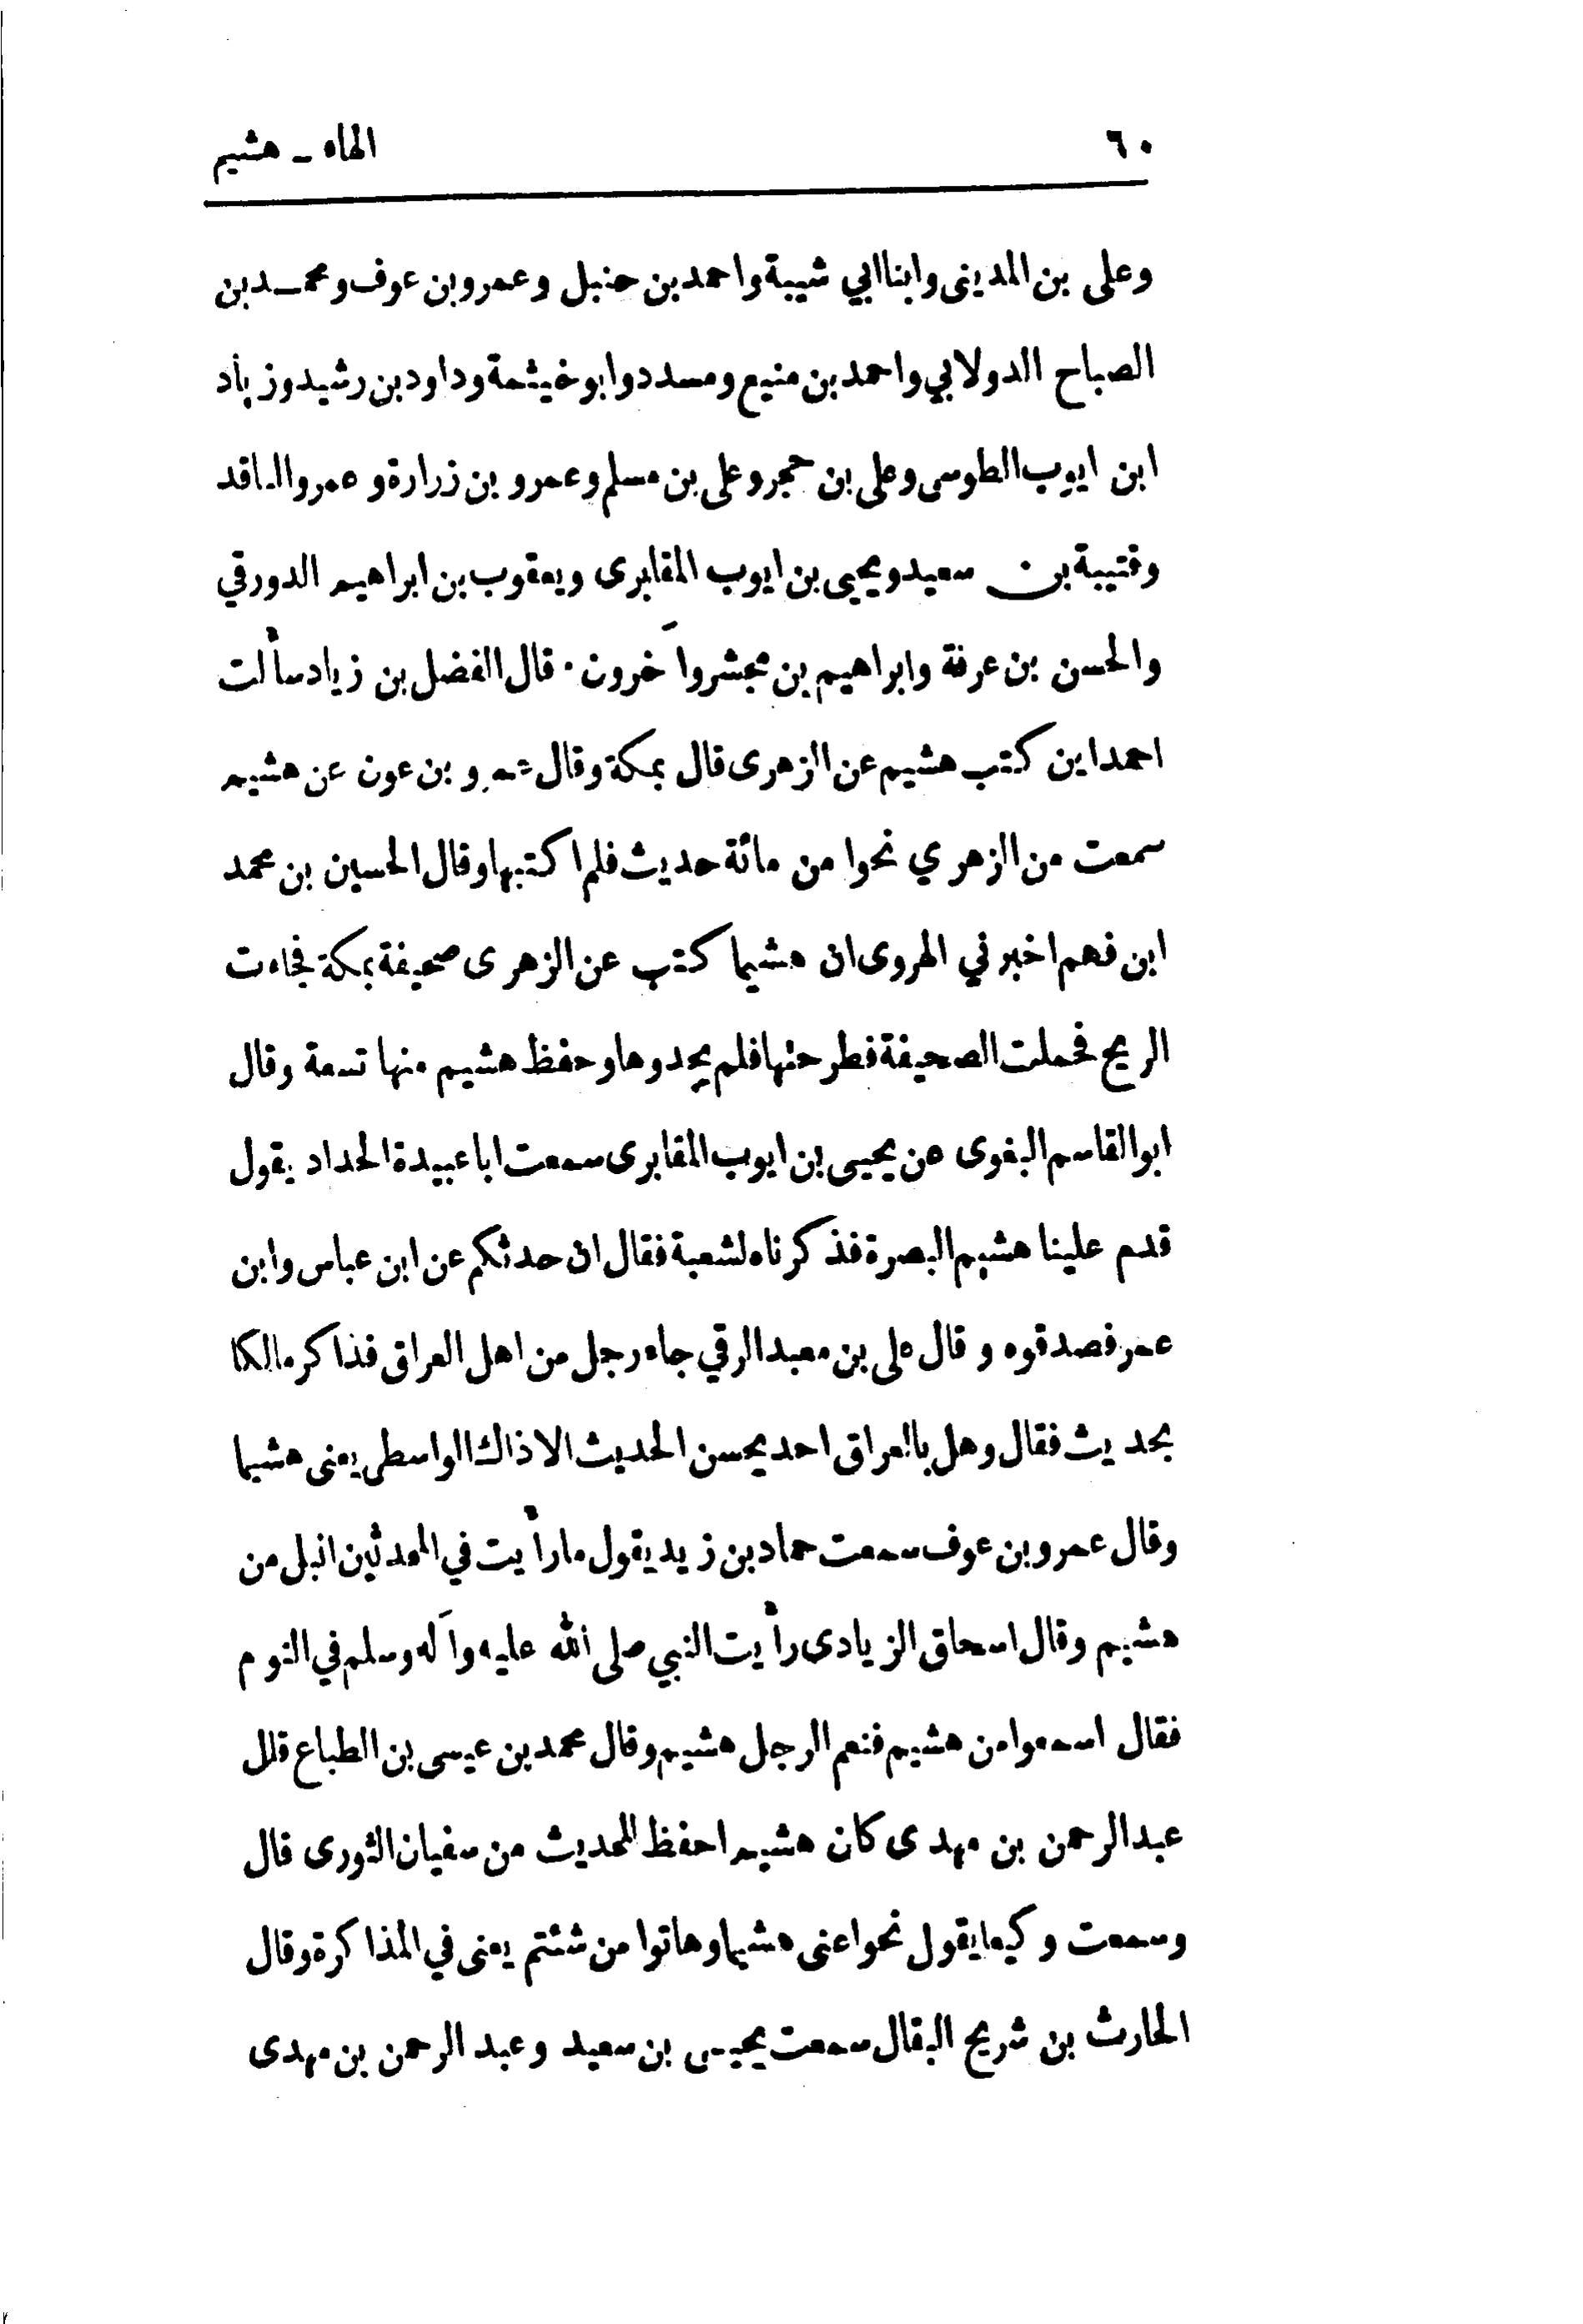 ٦٠
الهاء ـ هشيم
وعلى بن المدينى وابنا ابي شيبة واحمد بن حنبل وعمرو بن عوف ومحمد بن
الصباح الدولابي واحمد بن منيع ومسدد وابو خيثمة وداود بن رشيد وزياد
ابن ايوب الطوسى وعلى بن حجر وعلى بن مسلم وعمرو بن زرارة وعمرو الناقد
وقتيبة بن سعيد ويحيى بن ايوب المقابرى ويعقوب بن ابراهيم الدورقي
والحسن بن عرفة وابراهيم بن مجشر وآخرون · قال الفضل بن زياد سألت
احمد اين كتب هشيم عن الزهرى قال بمكة وقال عمرو بن عون عن هشيم
سمعت من الزهري نحوا من مائة حديث فلم اكتبها وقال الحسين بن محمد
ابن فهم اخبرني الهروى ان هشيما كتب عن الزهرى صحيفة بمكة فجاءت
الريح فحملت الصحيفة فطرحتها فلم يجدوها وحفظ هشيم منها تسعة وقال
ابو القاسم البغوى عن يحيى بن ايوب المقابرى سمعت ابا عبيدة الحداد يقول
قدم علينا هشيم البصرة فذكرناه لشعبة فقال ان حدثكم عن ابن عباس وابن
عمر فصدقوه وقال على بن معبد الرقي جاء رجل من اهل العراق فذاكر مالكا
بحديث فقال وهل بالعراق احد يحسن الحديث الا ذاك الواسطى يعنى هشيما
وقال عمرو بن عوف سمعت حماد بن زيد يقول ما رأيت في المحدثين انبل من
هشيم وقال اسحاق الزيادى رأيت النبي صلى الله عليه وآله وسلم في النوم
فقال اسمعوا من هشيم فنعم الرجل هشيم وقال محمد بن عيسى بن الطباع قال
عبد الرحمن بن مهدى كان هشيم احفظ للحديث من سفيان الثورى قال
وسمعت وكيعا يقول نحوا عنى هشيما وهاتوا من شئتم يعنى في المذاكرة وقال
الحارث بن شريح البقال سمعت يحيى بن سعيد وعبد الرحمن بن مهدى